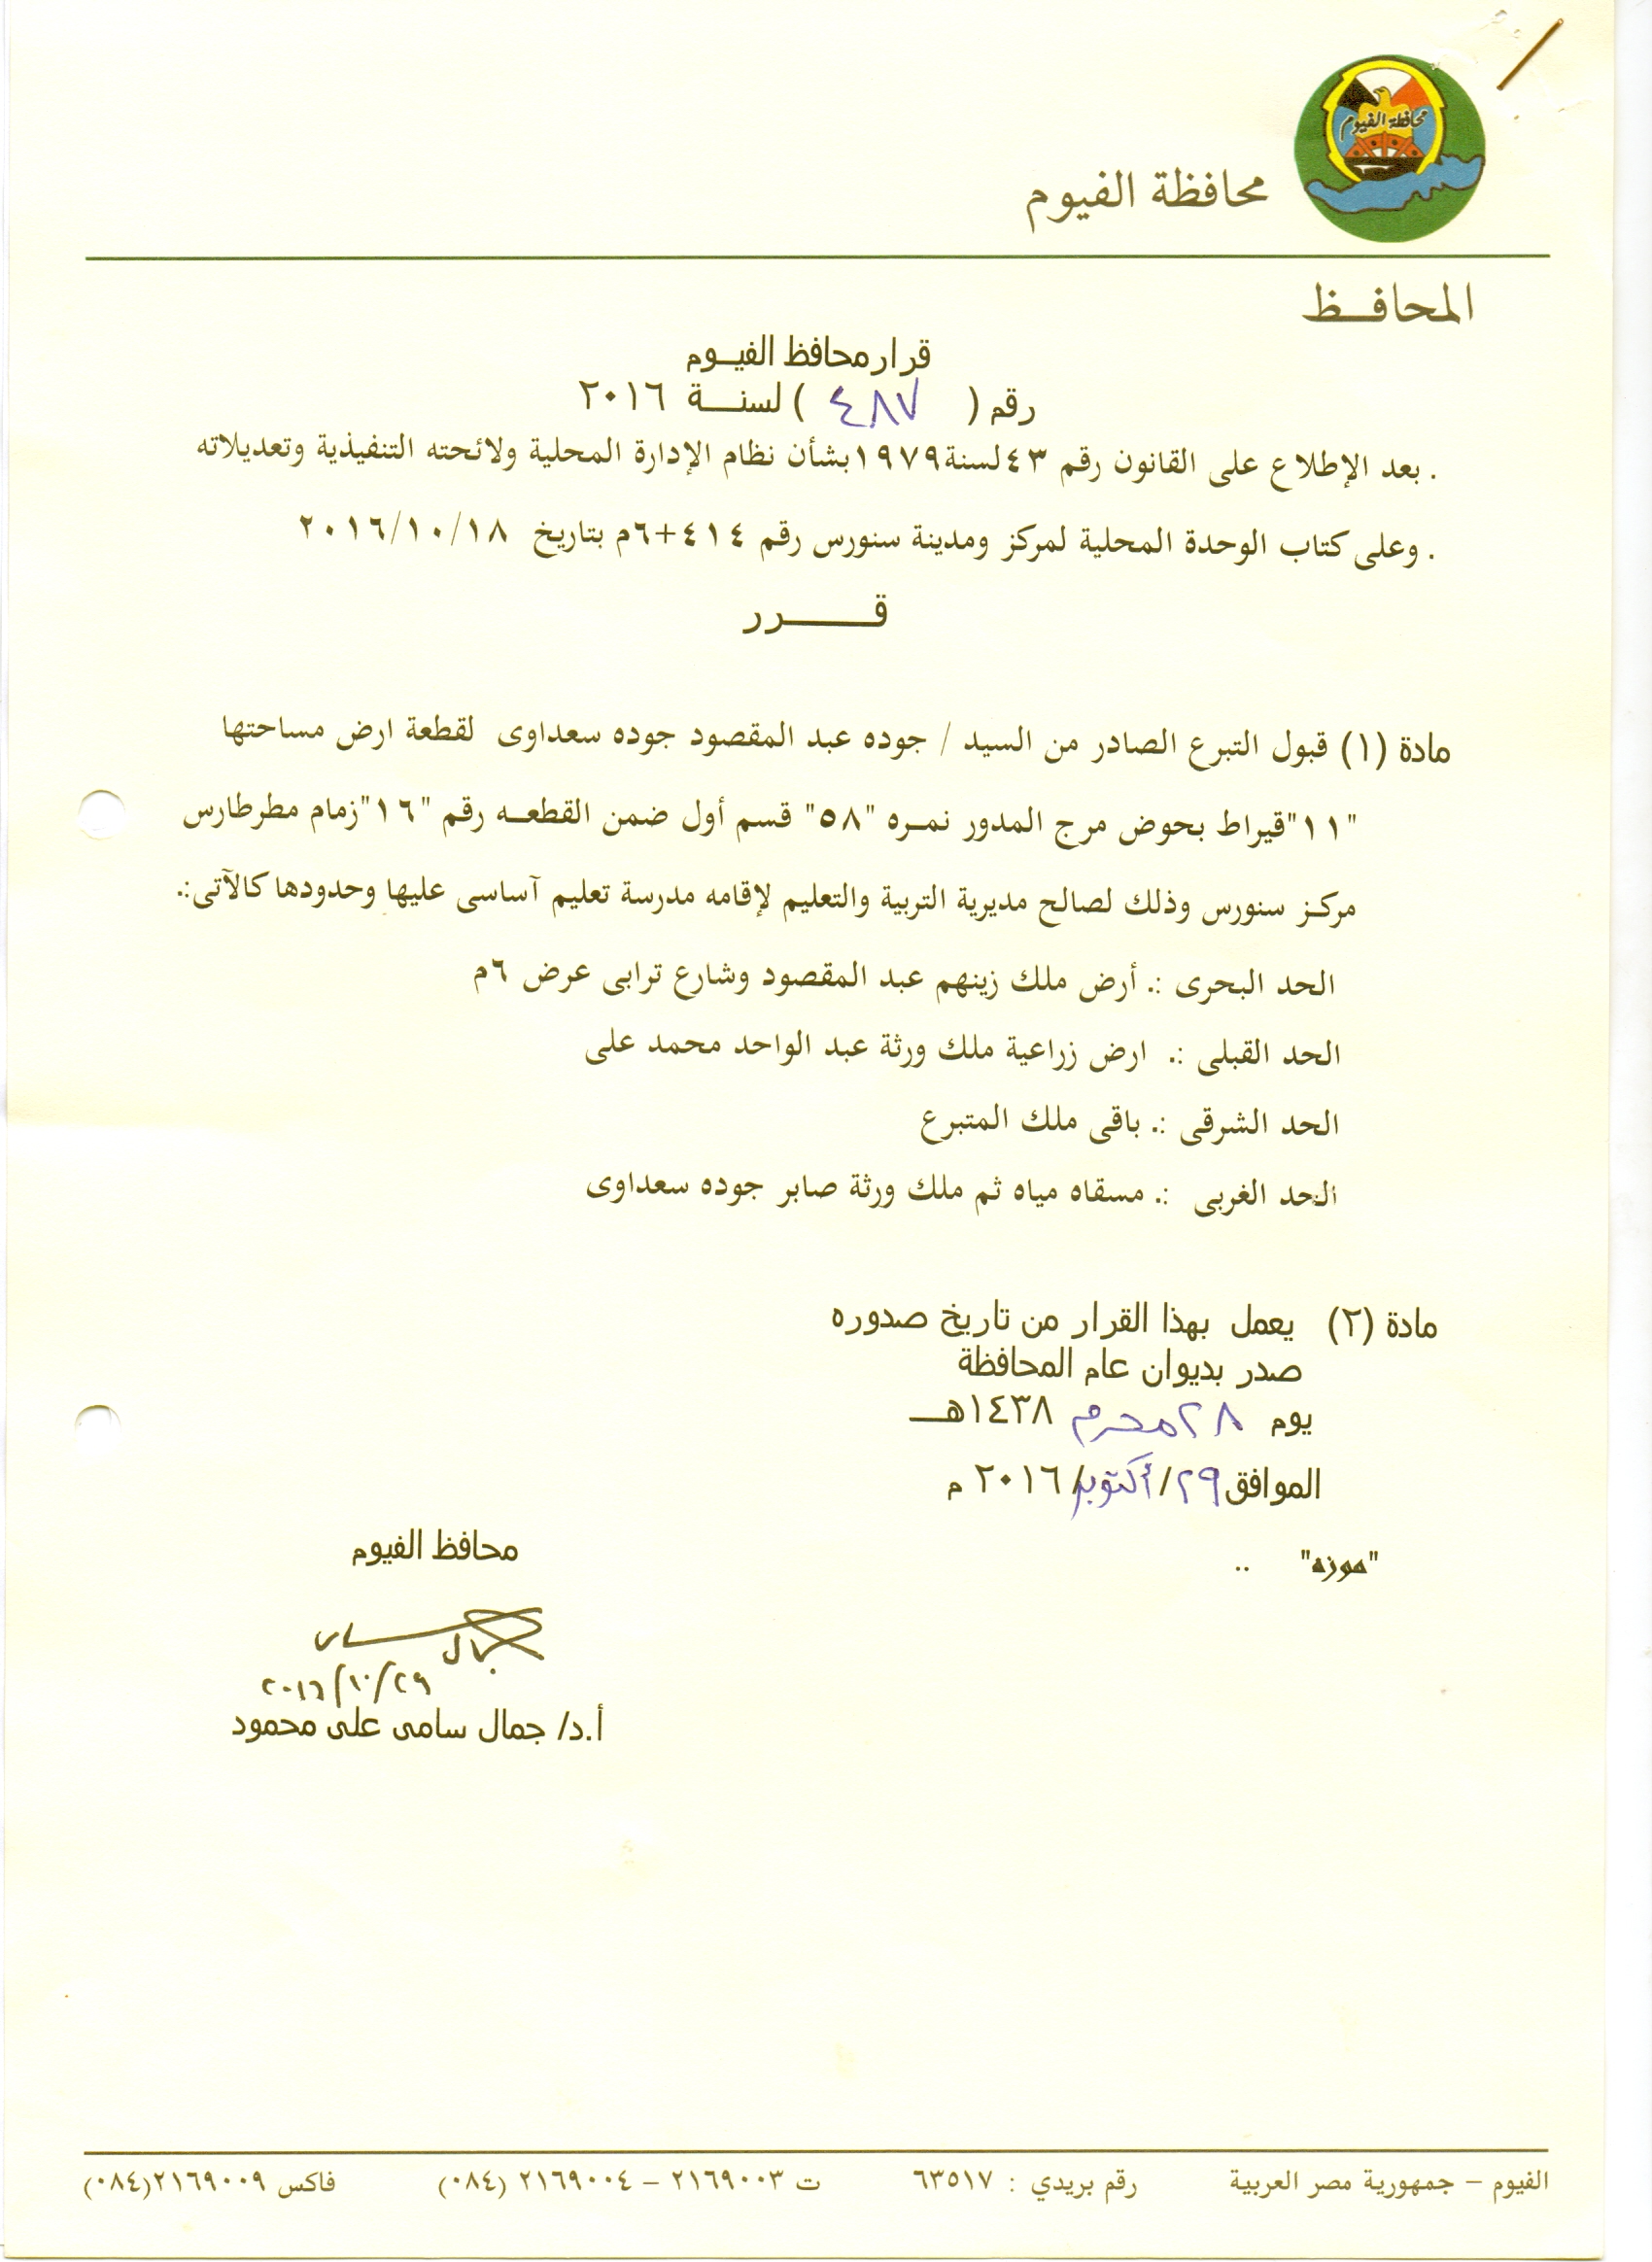 محافظة الفيوم
محافظة الفيوم
المحافـظ
قرار محافظ الفيـوم
رقم ( ٤٨٧ ) لسنـــة ٢٠١٦
. بعد الإطلاع على القانون رقم ٤٣ لسنة ١٩٧٩ بشأن نظام الإدارة المحلية ولائحته التنفيذية وتعديلاته
. وعلى كتاب الوحدة المحلية لمركز ومدينة سنورس رقم ٤١٤+٦م بتاريخ ٢٠١٦/١٠/١٨
قـــــرر
مادة (١) قبول التبرع الصادر من السيد / جوده عبد المقصود جوده سعداوى لقطعة ارض مساحتها
"١١"قيراط بحوض مرج المدور نمـره "٥٨" قسم أول ضمن القطعـه رقم "١٦"زمام مطرطارس
مركـز سنورس وذلك لصالح مديرية التربية والتعليم لإقامه مدرسة تعليم آساسى عليها وحدودها كالآتى:.
الحد البحرى :. أرض ملك زينهم عبد المقصود وشارع ترابى عرض ٦م
الحد القبلى :. ارض زراعية ملك ورثة عبد الواحد محمد على
الحد الشرقى :. باقى ملك المتبرع
الحد الغربى :. مسقاه مياه ثم ملك ورثة صابر جوده سعداوى
مادة (٢) يعمل بهذا القرار من تاريخ صدوره
صدر بديوان عام المحافظة
يوم ٢٨ محرم ١٤٣٨هـــ
الموافق ٢٩/أكتوبر/٢٠١٦ م
"موزه" ..
محافظ الفيوم
٢٠١٦/١٠/٢٩
أ.د/ جمال سامى على محمود
الفيوم – جمهورية مصر العربية رقم بريدي : ٦٣٥١٧ ت ٢١٦٩٠٠٣ – ٢١٦٩٠٠٤ (٠٨٤) فاكس ٢١٦٩٠٠٩(٠٨٤)